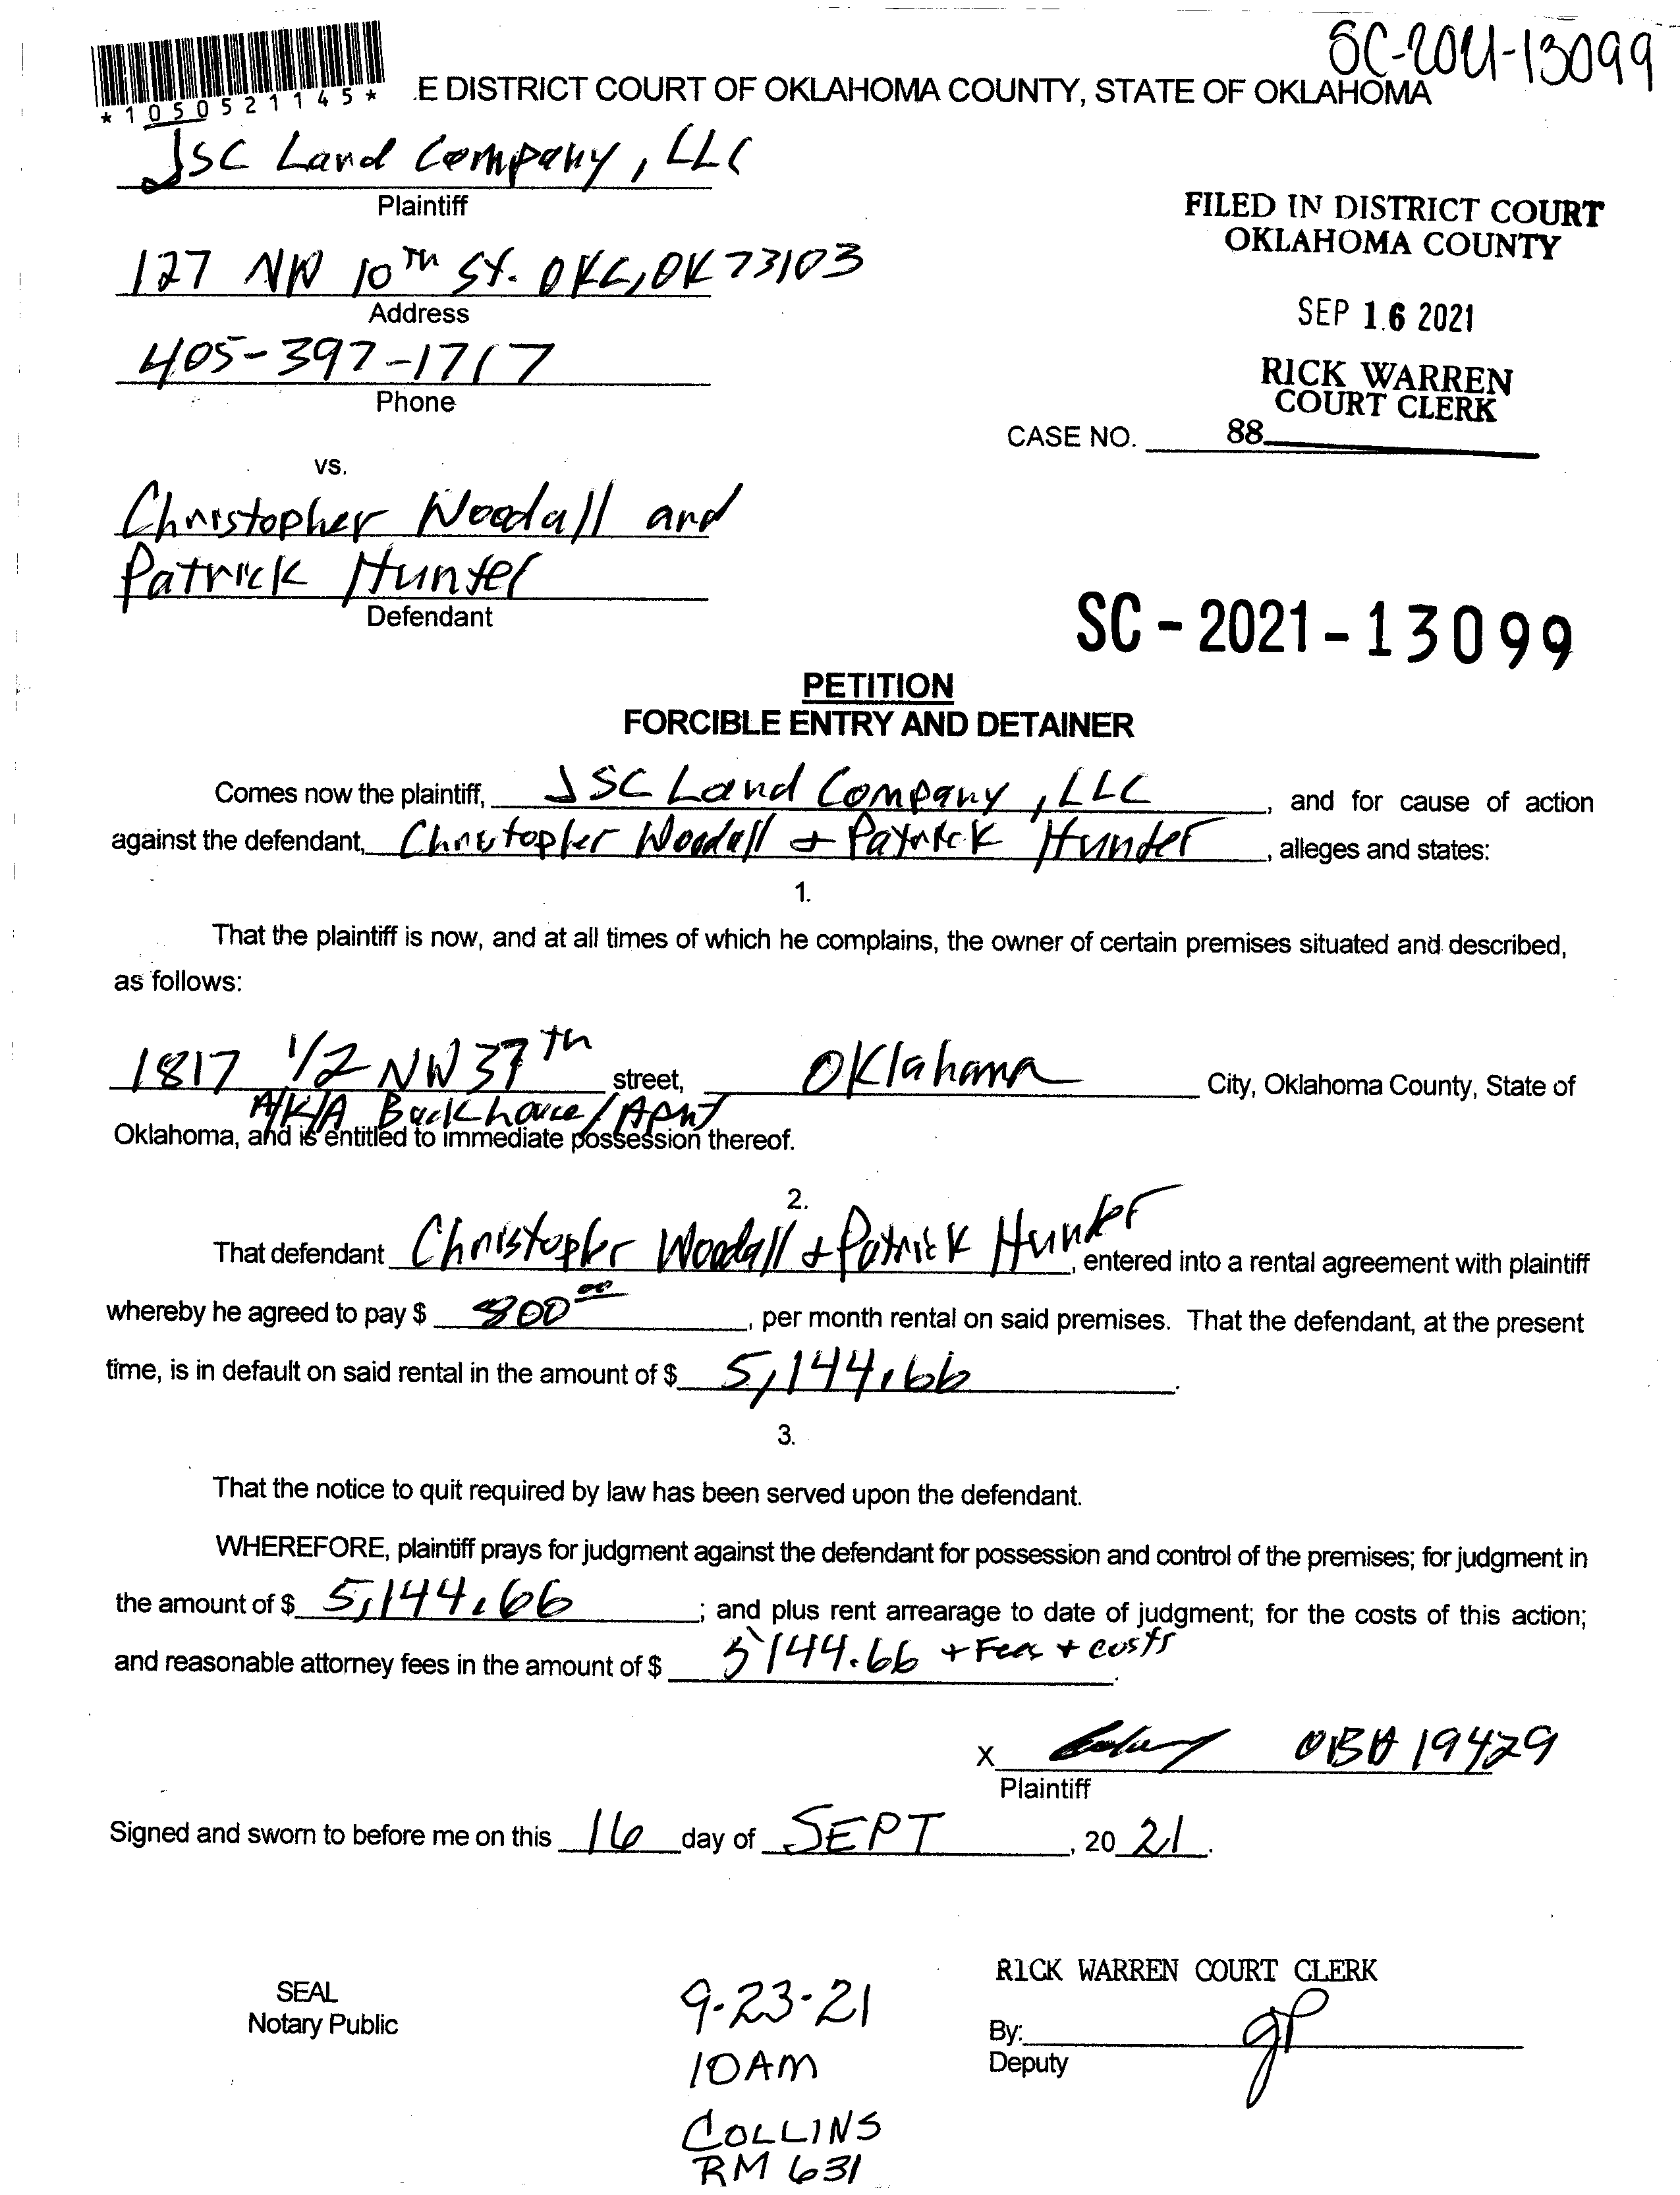 SC-2021-13099
*1050521145*
.E DISTRICT COURT OF OKLAHOMA COUNTY, STATE OF OKLAHOMA
JSC Land Company, LLC
Plaintiff
FILED IN DISTRICT COURT
OKLAHOMA COUNTY
127 NW 10TH St. OKC, OK 73103
Address
SEP 16 2021
405-397-1717
Phone
RICK WARREN
COURT CLERK
CASE NO. 88
vs.
Christopher Woodall and
Patrick Hunter
Defendant
SC-2021-13099
PETITION
FORCIBLE ENTRY AND DETAINER
Comes now the plaintiff, JSC Land Company, LLC, and for cause of action
against the defendant, Christopher Woodall + Patrick Hunter, alleges and states:
1.
That the plaintiff is now, and at all times of which he complains, the owner of certain premises situated and described,
as follows:
1817 1/2 NW 37th street, Oklahoma City, Oklahoma County, State of
A/K/A Backhouse/Apmt
Oklahoma, and is entitled to immediate possession thereof.
2.
That defendant Christopher Woodall + Patrick Hunter, entered into a rental agreement with plaintiff
whereby he agreed to pay $ 800.00, per month rental on said premises. That the defendant, at the present
time, is in default on said rental in the amount of $ 5,144.66.
3.
That the notice to quit required by law has been served upon the defendant.
WHEREFORE, plaintiff prays for judgment against the defendant for possession and control of the premises; for judgment in
the amount of $ 5,144.66; and plus rent arrearage to date of judgment; for the costs of this action;
and reasonable attorney fees in the amount of $ 5144.66 + Fees + costs.
X OBA 19429
Plaintiff
Signed and sworn to before me on this 16 day of SEPT, 20 21.
RICK WARREN COURT CLERK
SEAL
Notary Public
By:
Deputy
9-23-21
10AM
COLLINS
RM 631